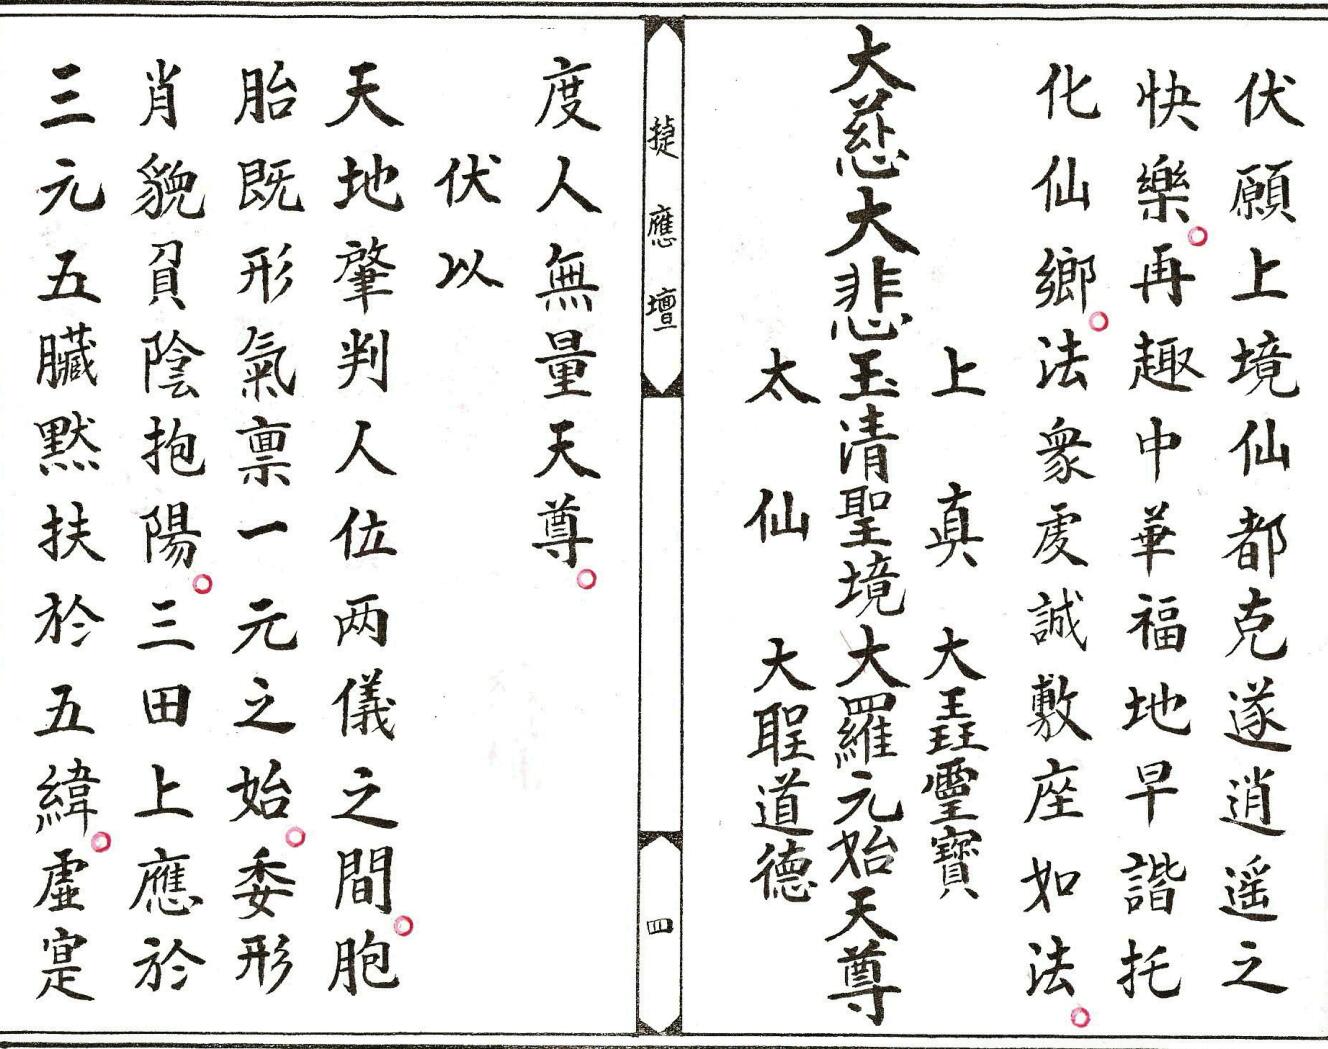 伏願上境仙都克遂逍遥之
快樂。再趣中華福地早諧托
化仙鄉。法衆虔誠敷座如法。
上真 大靈寶
大慈大悲玉清聖境大羅元始天尊
太仙 大聖道德
㨗應壇
四
度人無量天尊。
伏以
天地肇判人位两儀之間。胞
胎既形氣禀一元之始。委形
肖貌負陰抱陽。三田上應於
三元五臟黙扶於五緯。虛寔